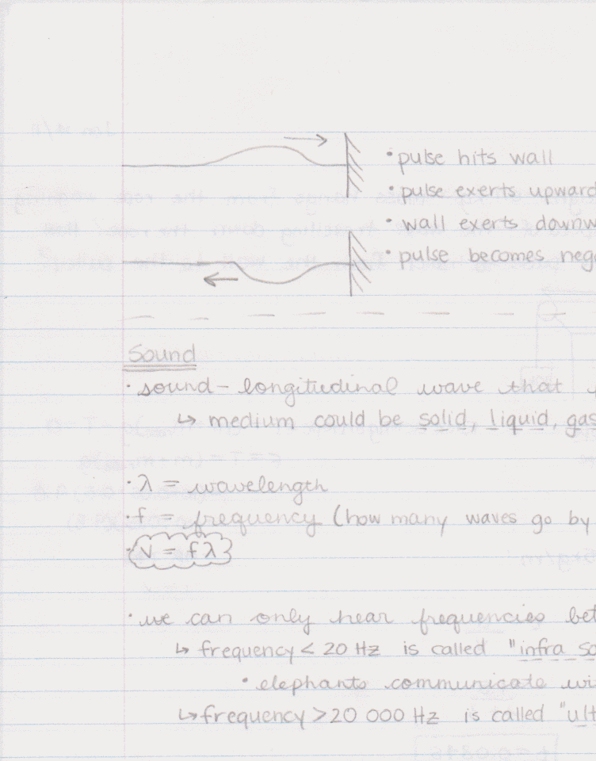 • pulse hits wall
• pulse exerts upward
• wall exerts downw
• pulse becomes neg
Sound
• sound - longitudinal wave that
↳ medium could be solid, liquid, gas
• λ = wavelength
• f = frequency (how many waves go by
• v = fλ
• we can only hear frequencies bet
↳ frequency < 20 Hz is called "infra so
• elephants communicate wi
↳ frequency > 20 000 Hz is called "ult